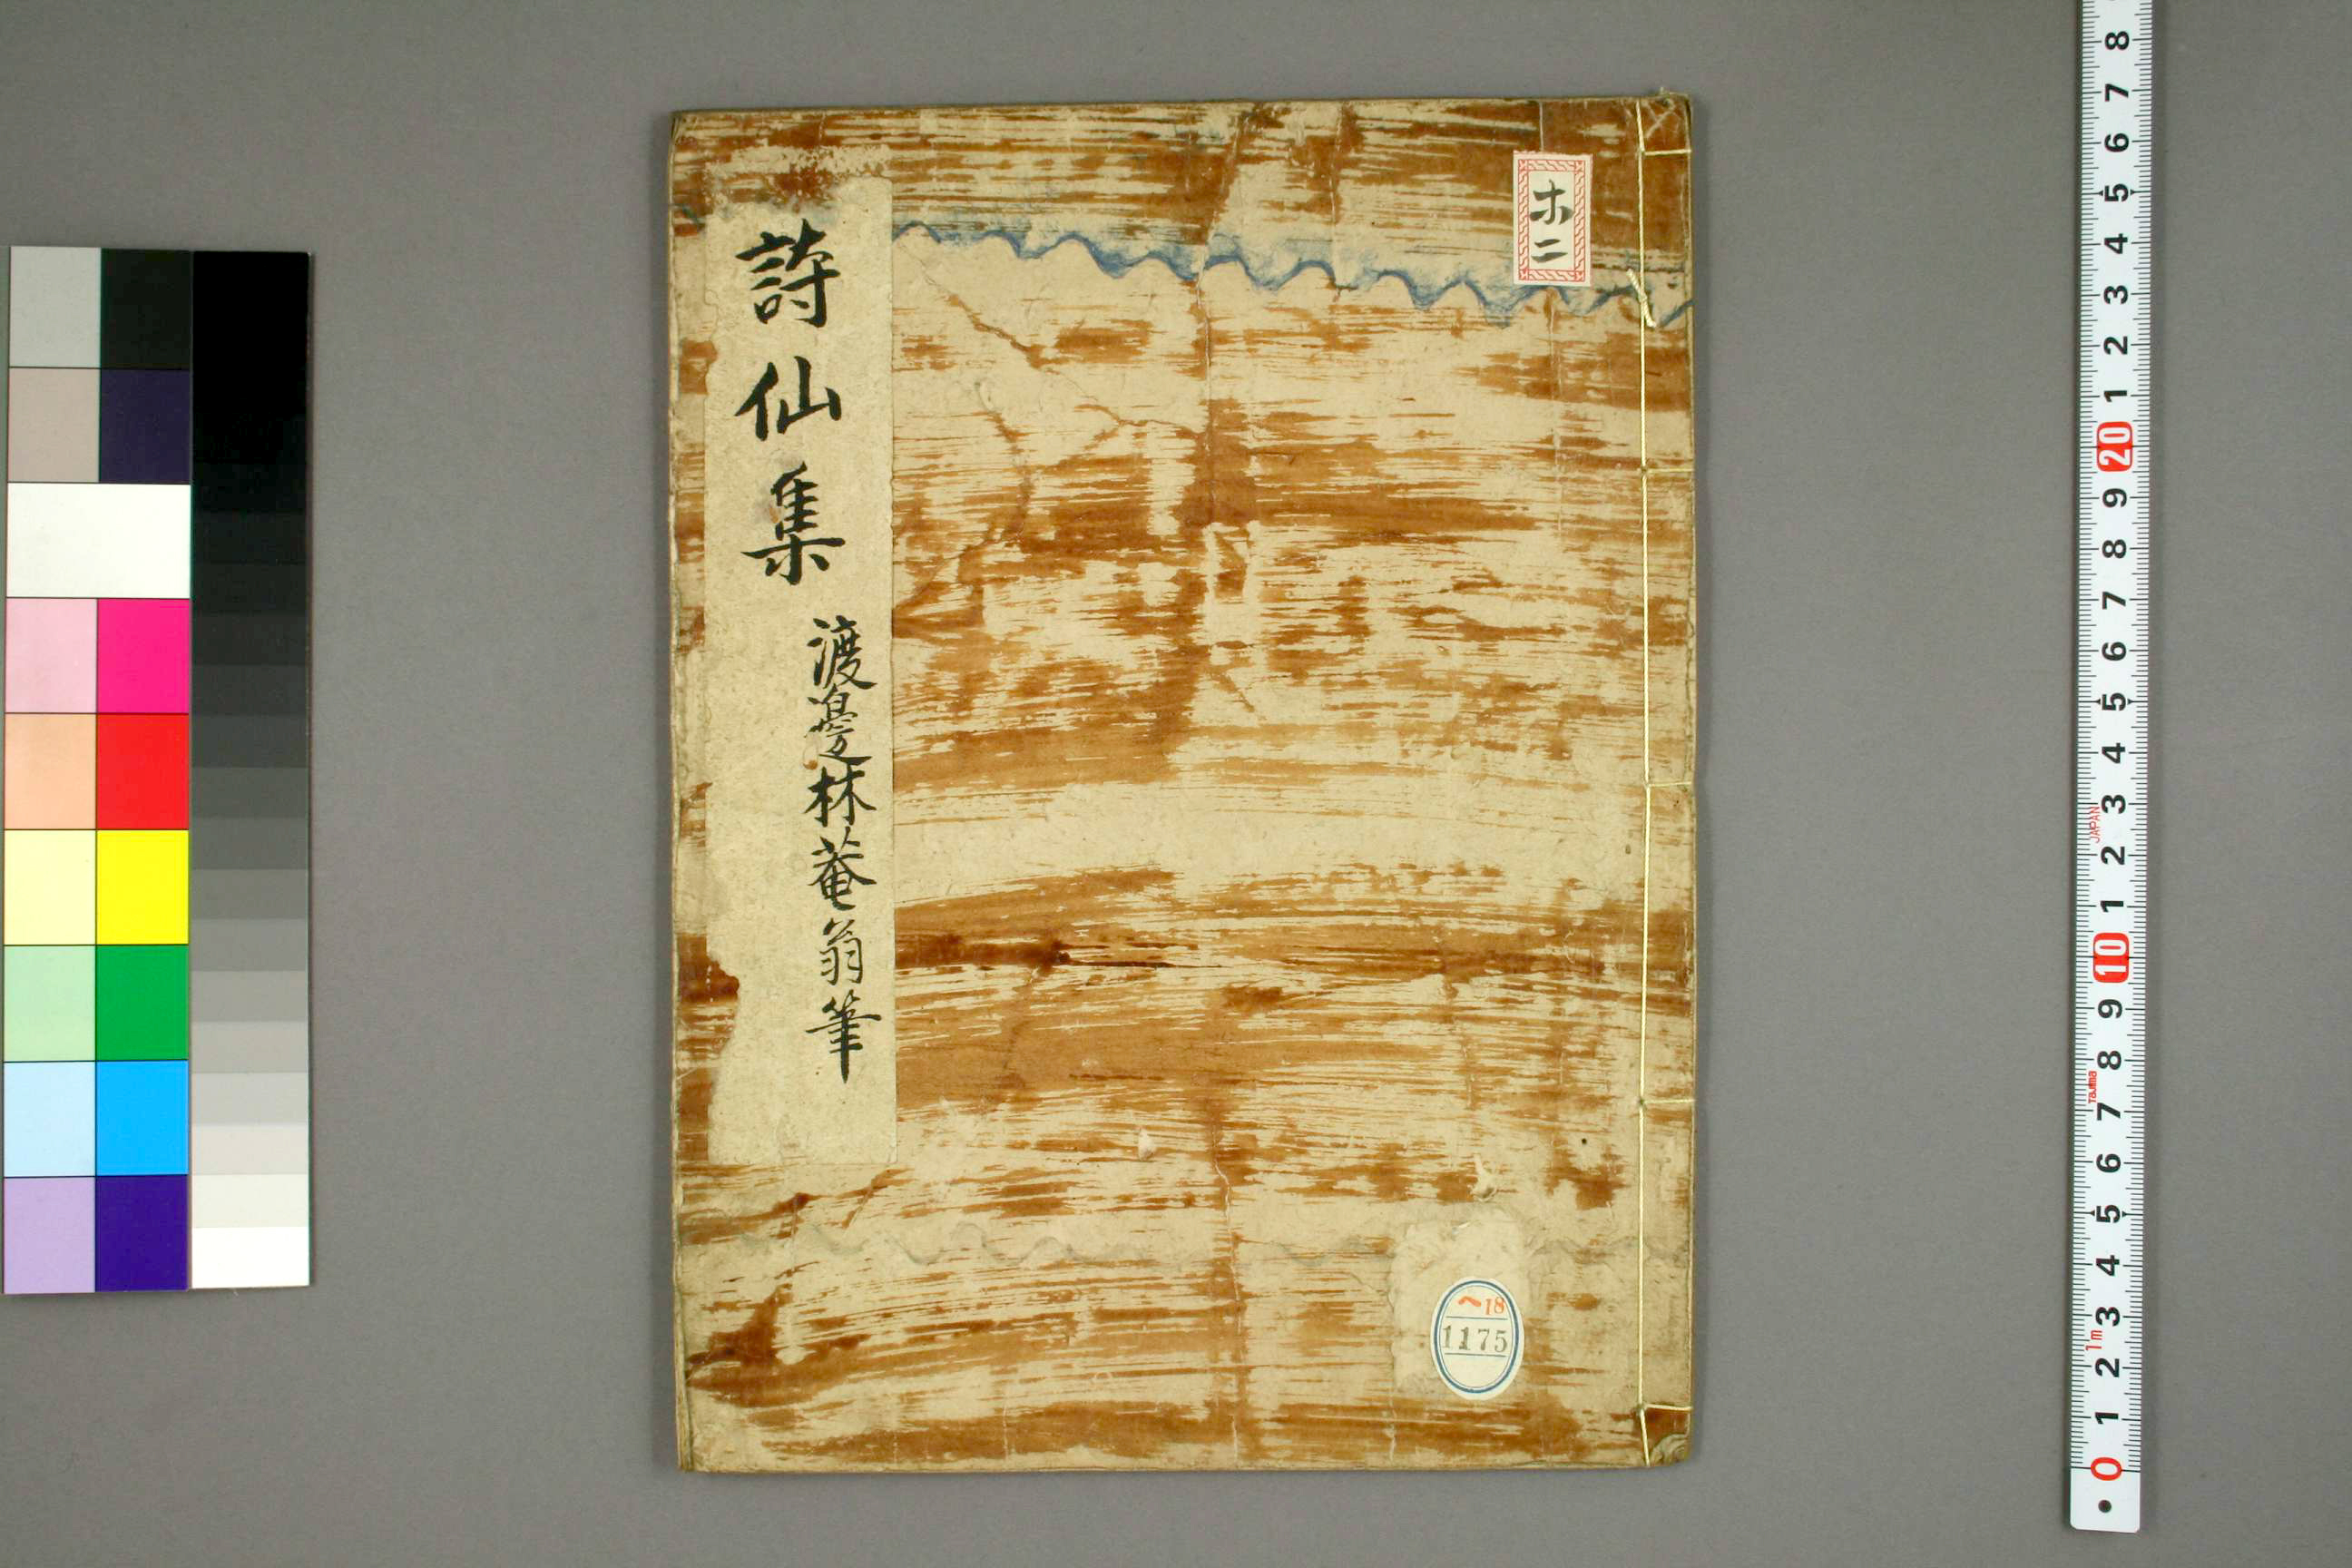 ホ二
詩仙集
渡邉林菴翁筆
ヘ18
1175
8
7
6
5
4
3
2
1
20
9
8
7
6
5
4
3
2
1
10
9
8
7
6
5
4
3
2
1
0
JAPAN
Tajima
1m